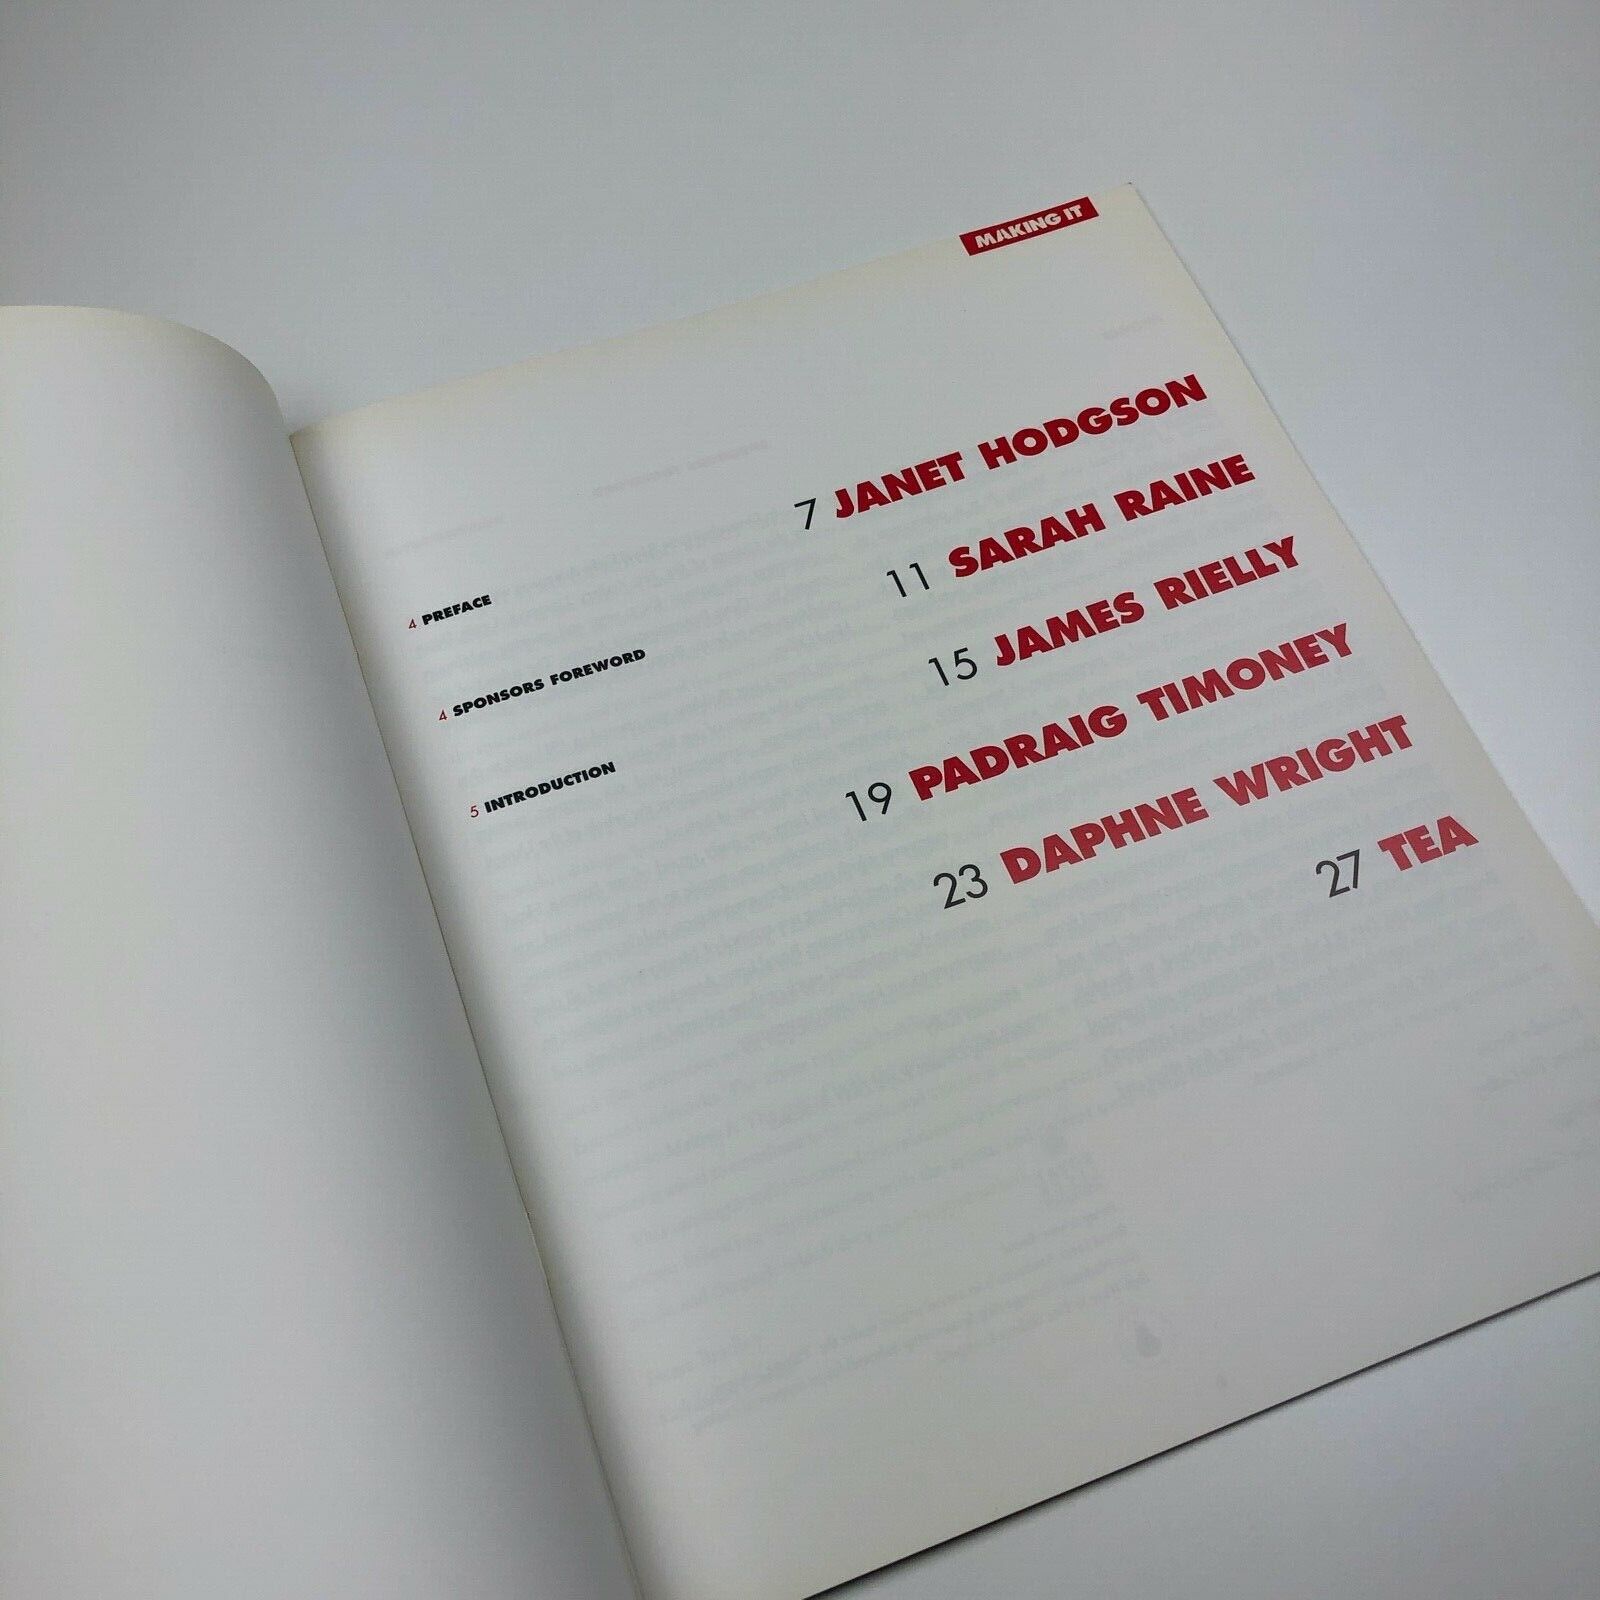 MAKING IT
4 PREFACE
4 SPONSORS FOREWORD
5 INTRODUCTION
7 JANET HODGSON
11 SARAH RAINE
15 JAMES RIELLY
19 PADRAIG TIMONEY
23 DAPHNE WRIGHT
27 TEA